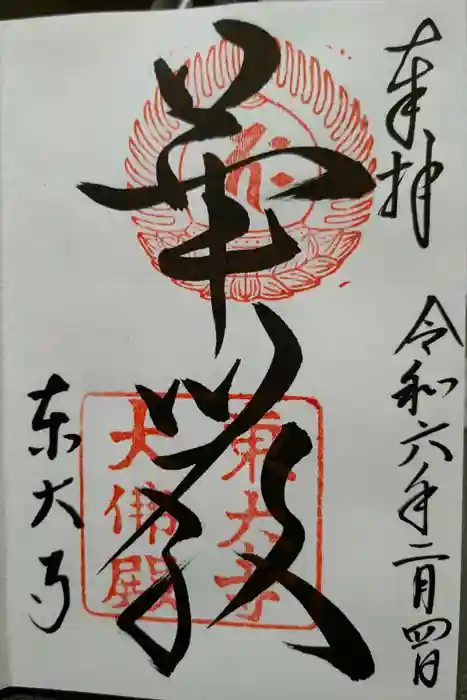 奉拝
令和六年二月四日
華厳
東大寺
大佛殿
東大寺